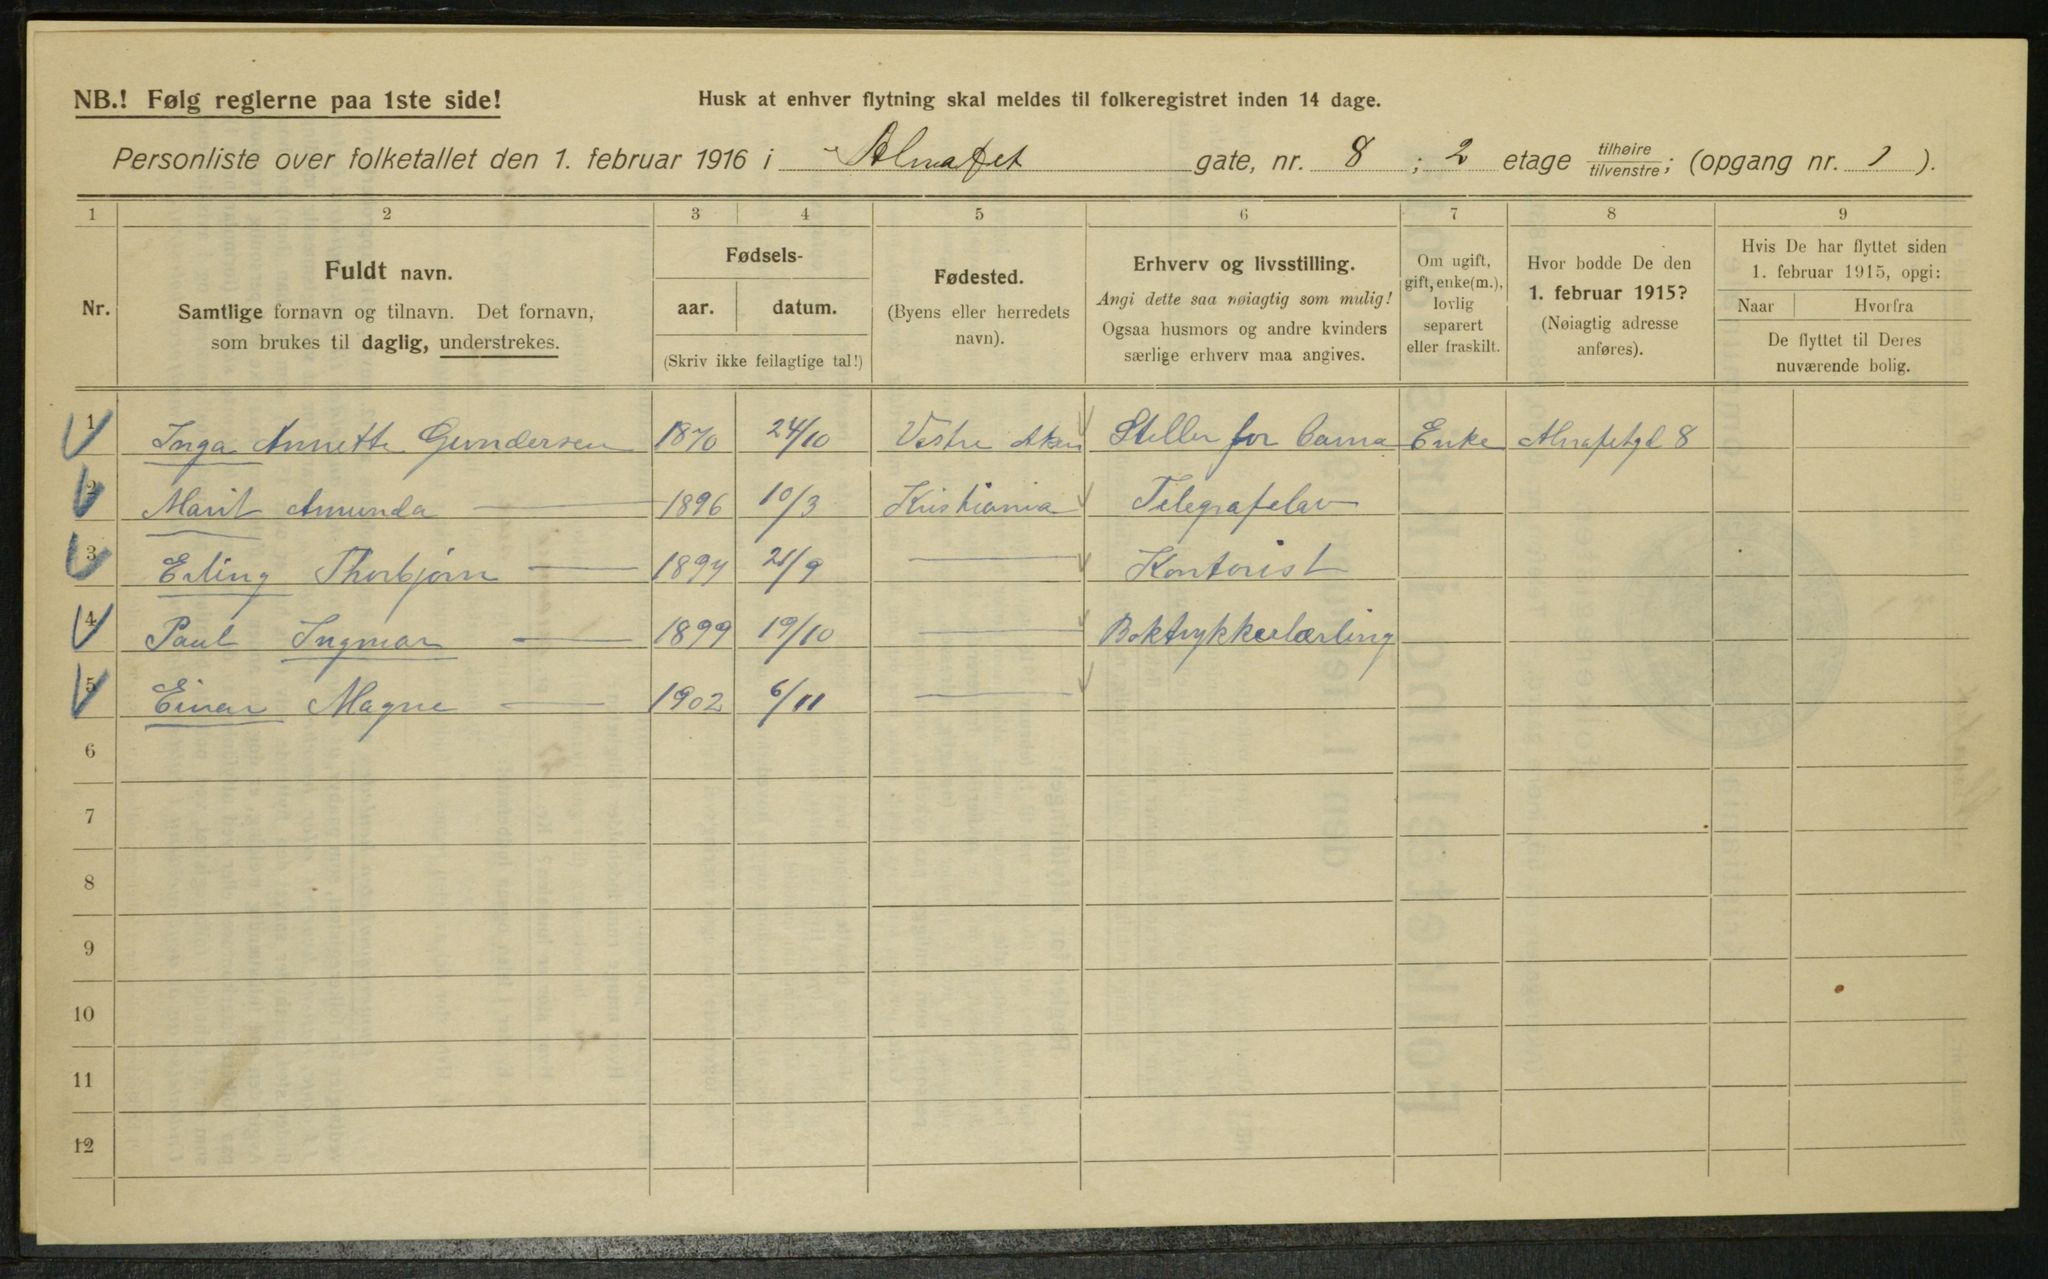 NB.! Følg reglerne paa 1ste side!
Husk at enhver flytning skal meldes til folkeregistret inden 14 dage.
Personliste over folketallet den 1. februar 1916 i Alnafet gate, nr. 8 ; 2 etage tilhøire/tilvenstre; (opgang nr. 1 ).
1 2 3 4 5 6 7 8 9
Nr.
Fuldt navn.
Samtlige fornavn og tilnavn. Det fornavn,
som brukes til daglig, understrekes.
Fødsels-
aar. datum.
(Skriv ikke feilagtige tal!)
Fødested.
(Byens eller herredets
navn).
Erhverv og livsstilling.
Angi dette saa nøiagtig som mulig!
Ogsaa husmors og andre kvinders
særlige erhverv maa angives.
Om ugift,
gift, enke(m.),
lovlig
separert
eller fraskilt.
Hvor bodde De den
1. februar 1915?
(Nøiagtig adresse
anføres).
Hvis De har flyttet siden
1. februar 1915, opgi:
Naar Hvorfra
De flyttet til Deres
nuværende bolig.
1 Inga Annette Gundersen 1870 24/10 Vestre Aker Steller for barna Enke Alnafetgd 8
2 Marit Amunda — 1896 10/3 Kristiania Telegrafelev
3 Erling Thorbjørn — 1897 21/9 — Kontorist
4 Paul Ingmar — 1899 19/10 — Boktrykkerlærling
5 Einar Magne — 1902 6/11 —
6
7
8
9
10
11
12